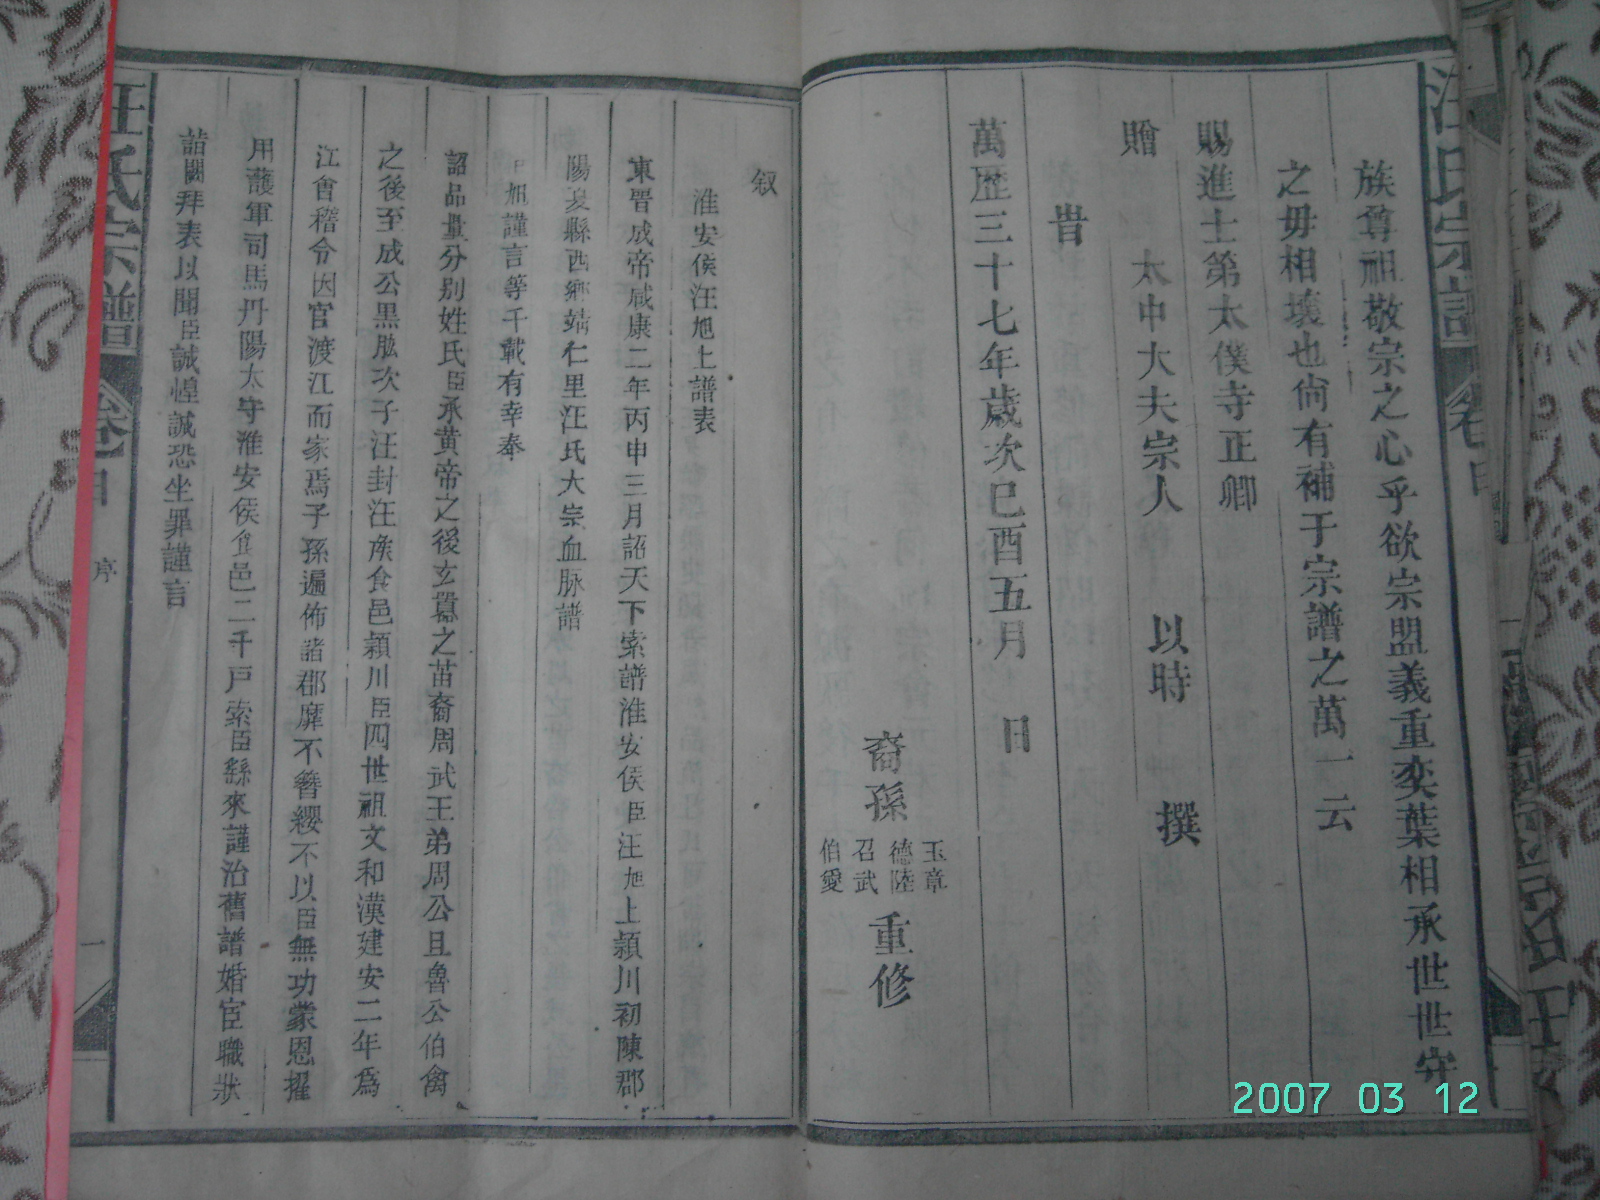 族尊祖敬宗之心乎欲宗盟義重奕葉相承世世守
之毋相壞也尙有補于宗譜之萬一云
賜進士第太僕寺正卿
贈 太中大夫宗人 以時 撰
旹
萬歷三十七年歲次巳酉五月 日
裔孫
玉章
德陸
召武
伯愛
重修
叙
淮安侯汪旭上譜表
東晉成帝咸康二年丙申三月詔天下索譜淮安侯臣汪旭上潁川初陳郡
陽夏縣西鄉靖仁里汪氏大宗血脉譜
臣旭謹言等千載有幸奉
詔品量分别姓氏臣承黄帝之後玄囂之苗裔周武王弟周公且魯公伯禽
之後至成公黒肱次子汪封汪侯食邑潁川臣四世祖文和漢建安二年爲
江會稽令因官渡江而家焉子孫遍佈諸郡靡不簪纓不以臣無功蒙恩擢
用護軍司馬丹陽太守淮安侯食邑二千戸索臣繇來謹治舊譜婚宦職狀
詣闕拜表以聞臣誠惶誠恐坐罪謹言
汪氏宗譜
序
一
汪氏宗譜
2007 03 12